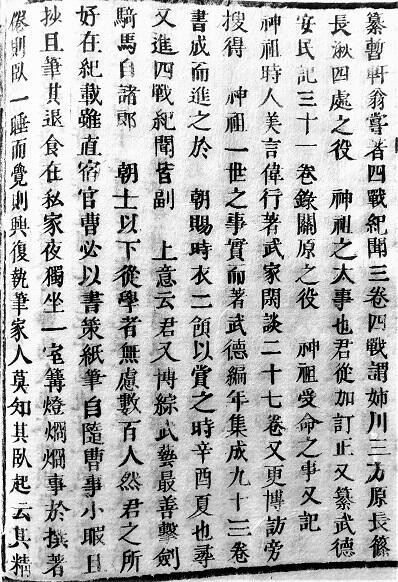 纂暫軒翁嘗著四戰紀聞三卷四戰謂姉川三方原長篠
長湫四處之役　神祖之大事也君從加訂正又纂武德
安民記三十一卷錄關原之役　神祖受命之事又記
神祖時人美言偉行著武家閑談二十七卷又更博訪旁
搜得　神祖一世之事實而著武德編年集成九十三卷
書成而進之於　朝賜時衣二領以賞之時辛酉夏也尋
又進四戰紀聞皆副　上意云君又博綜武藝最善擊劍
騎馬自諸郎　朝士以下從學者無慮數百人然君之所
好在紀載雖直宿官曹必以書策紙筆自隨曹事小暇且
抄且筆其退食在私家夜獨坐一室篝燈烱烱事於撰著
倦則臥一睡而覺則興復執筆家人莫知其臥起云其精